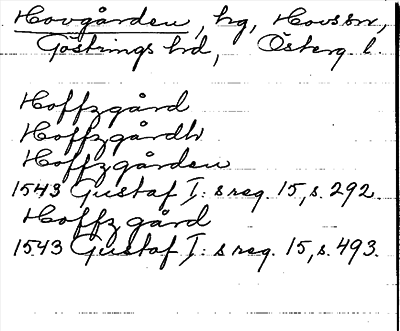 Hovgården, hg, Hovs sn,
Göstrings hd, Österg. l.
Hoffzgård
Hoffzgårdh
Hoffzgården
1543 Gustaf I: s reg. 15, s. 292.
Hoffz gård
1543 Gustaf I: s reg. 15, s. 493.